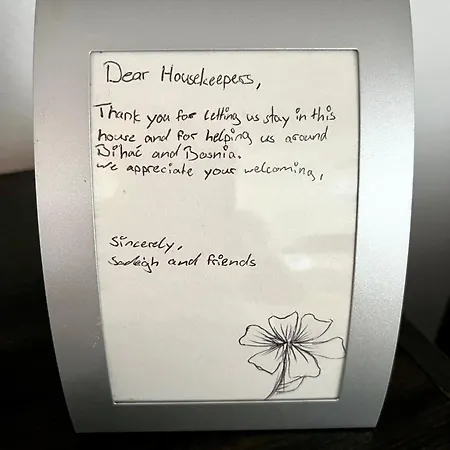 Dear Housekeepers,
Thank you for letting us stay in this
house and for helping us around
Bihać and Bosnia.
We appreciate your welcoming,
Sincerely,
and friends